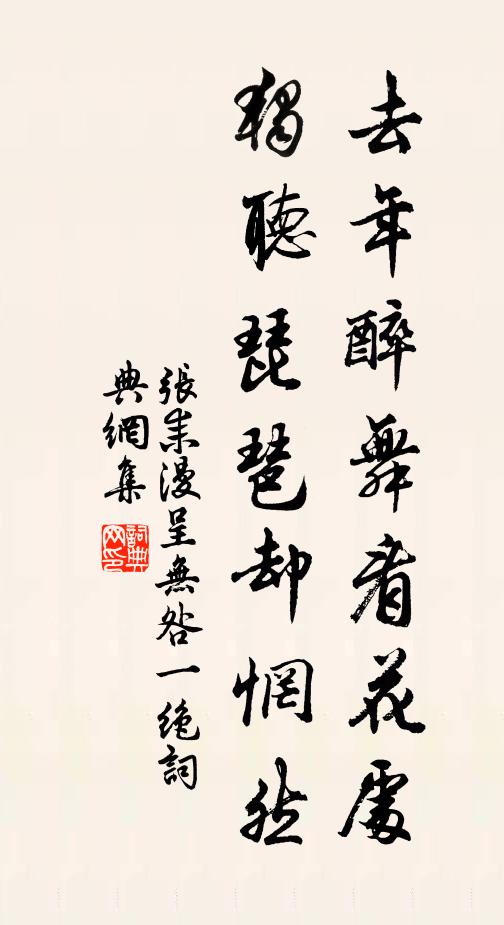 去年醉舞看花處
獨聽琵琶却惘然
張耒漫呈無咎一絶詞
典網集
詞典
网印